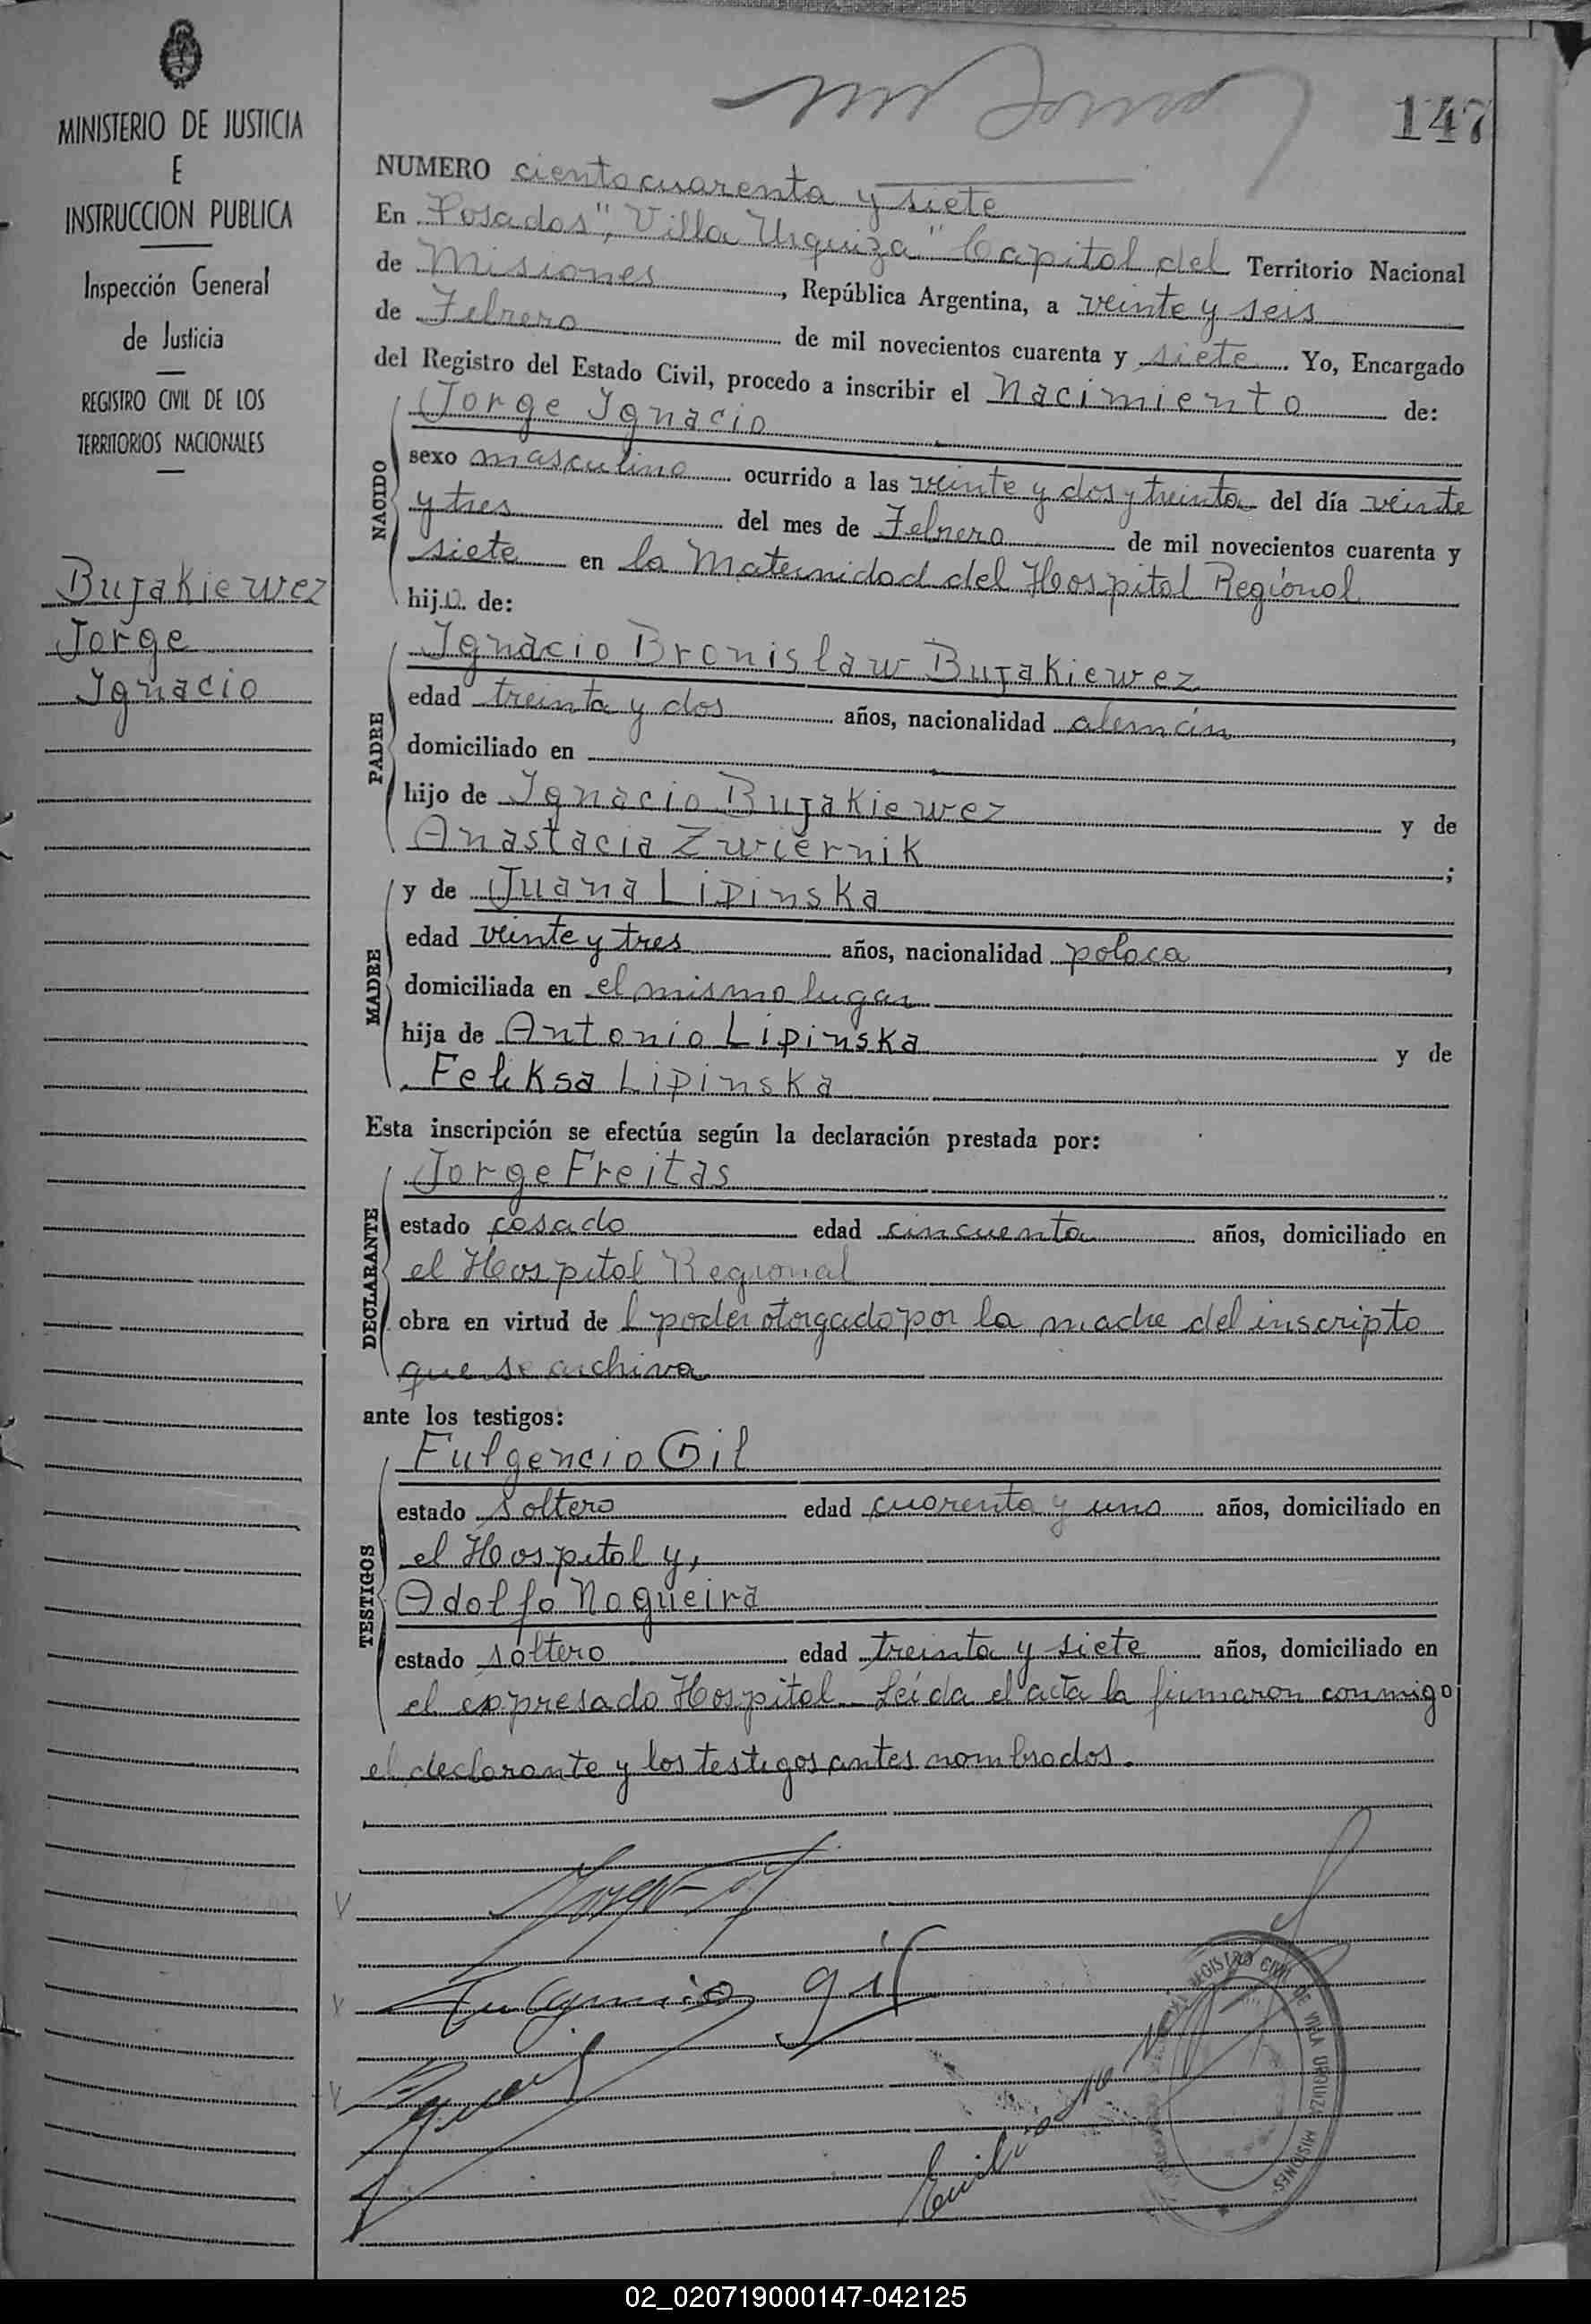 MINISTERIO DE JUSTICIA
E
INSTRUCCION PUBLICA
Inspección General
de Justicia
REGISTRO CIVIL DE LOS
TERRITORIOS NACIONALES
Bujakiewez
Jorge
Ignacio
147
NUMERO ciento cuarenta y siete
En Posadas", Villa Urquiza" Capital del Territorio Nacional
de Misiones, República Argentina, a veinte y seis
de Febrero de mil novecientos cuarenta y siete. Yo, Encargado
del Registro del Estado Civil, procedo a inscribir el Nacimiento de:
NACIDO
Jorge Ignacio
sexo masculino ocurrido a las veinte y dos y treinta del día veinte
y tres del mes de Febrero de mil novecientos cuarenta y
siete en la Maternidad del Hospital Regional
hijo de:
PADRE
Ignacio Bronislaw Bujakiewez
edad treinta y dos años, nacionalidad alemán,
domiciliado en
hijo de Ignacio Bujakiewez y de
Anastacia Zwiernik;
MADRE
y de Juana Lipinska
edad veinte y tres años, nacionalidad polaca,
domiciliada en el mismo lugar
hija de Antonio Lipinska y de
Feliksa Lipinska
Esta inscripción se efectúa según la declaración prestada por:
DECLARANTE
Jorge Freitas
estado casado edad cincuenta años, domiciliado en
el Hospital Regional
obra en virtud del poder otorgado por la madre del inscripto
que se archiva
ante los testigos:
TESTIGOS
Fulgencio Gil
estado soltero edad cuarenta y uno años, domiciliado en
el Hospital y,
Adolfo Nogueira
estado soltero edad treinta y siete años, domiciliado en
el expresado Hospital. Leída el acta la firmaron conmigo
el declarante y los testigos antes nombrados.
Fulgencio gil
Emiliano
REGISTRO CIVIL DE VILLA URQUIZA MISIONES
02_020719000147-042125